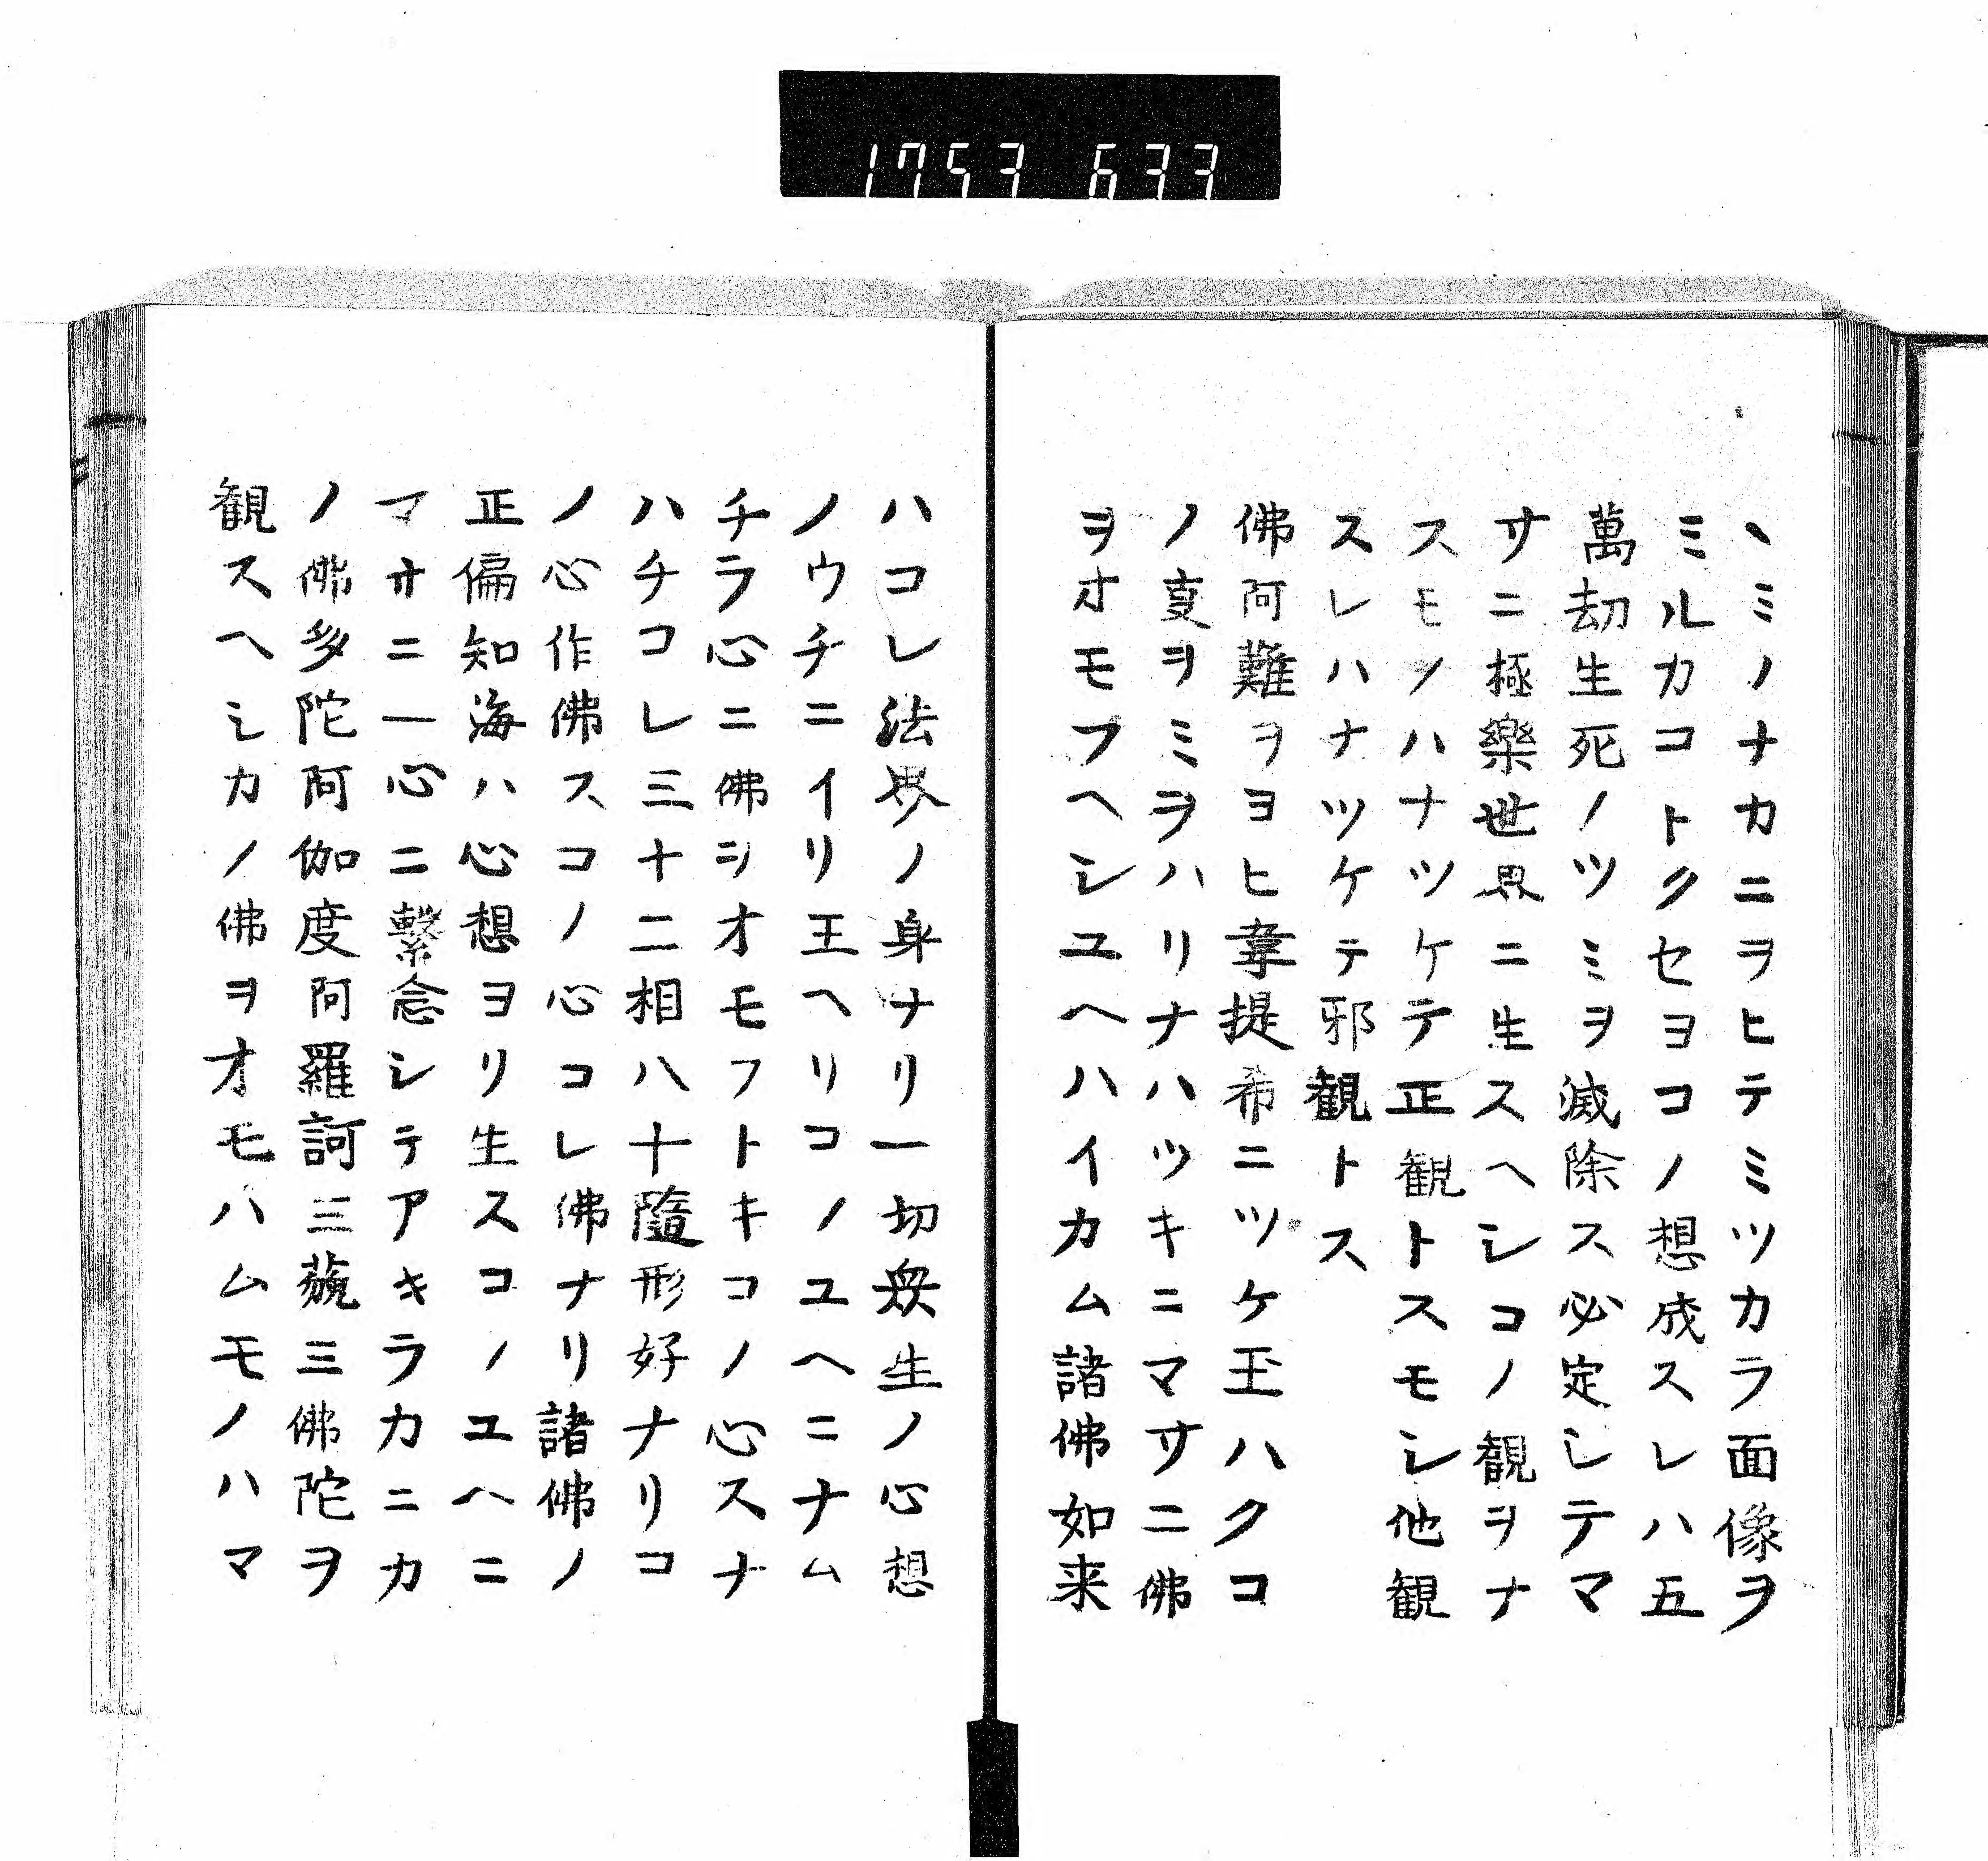 1753 633
ヽミノナカニヲヒテミツカラ面像ヲ
ミルカコトクセヨコノ想成スレハ五
萬劫生死ノツミヲ滅除ス必定シテマ
サニ極樂世界ニ生スヘシコノ観ヲナ
スモノハナツケテ正観トスモシ他観
スレハナツケテ邪観トス
佛阿難ヲヨヒ韋提希ニツケ玉ハクコ
ノ叓ヲミヲハリナハツキニマサニ佛
ヲオモフヘシユヘハイカム諸佛如来
ハコレ法界ノ身ナリ一切衆生ノ心想
ノウチニイリ玉ヘリコノユヘニナム
チラ心ニ佛ヲオモフトキコノ心スナ
ハチコレ三十二相八十隨形好ナリコ
ノ心作佛スコノ心コレ佛ナリ諸佛ノ
正徧知海ハ心想ヨリ生スコノユヘニ
マサニ一心ニ繫念シテアキラカニカ
ノ佛多陀阿伽度阿羅訶三藐三佛陀ヲ
観スヘシカノ佛ヲオモハムモノハマ